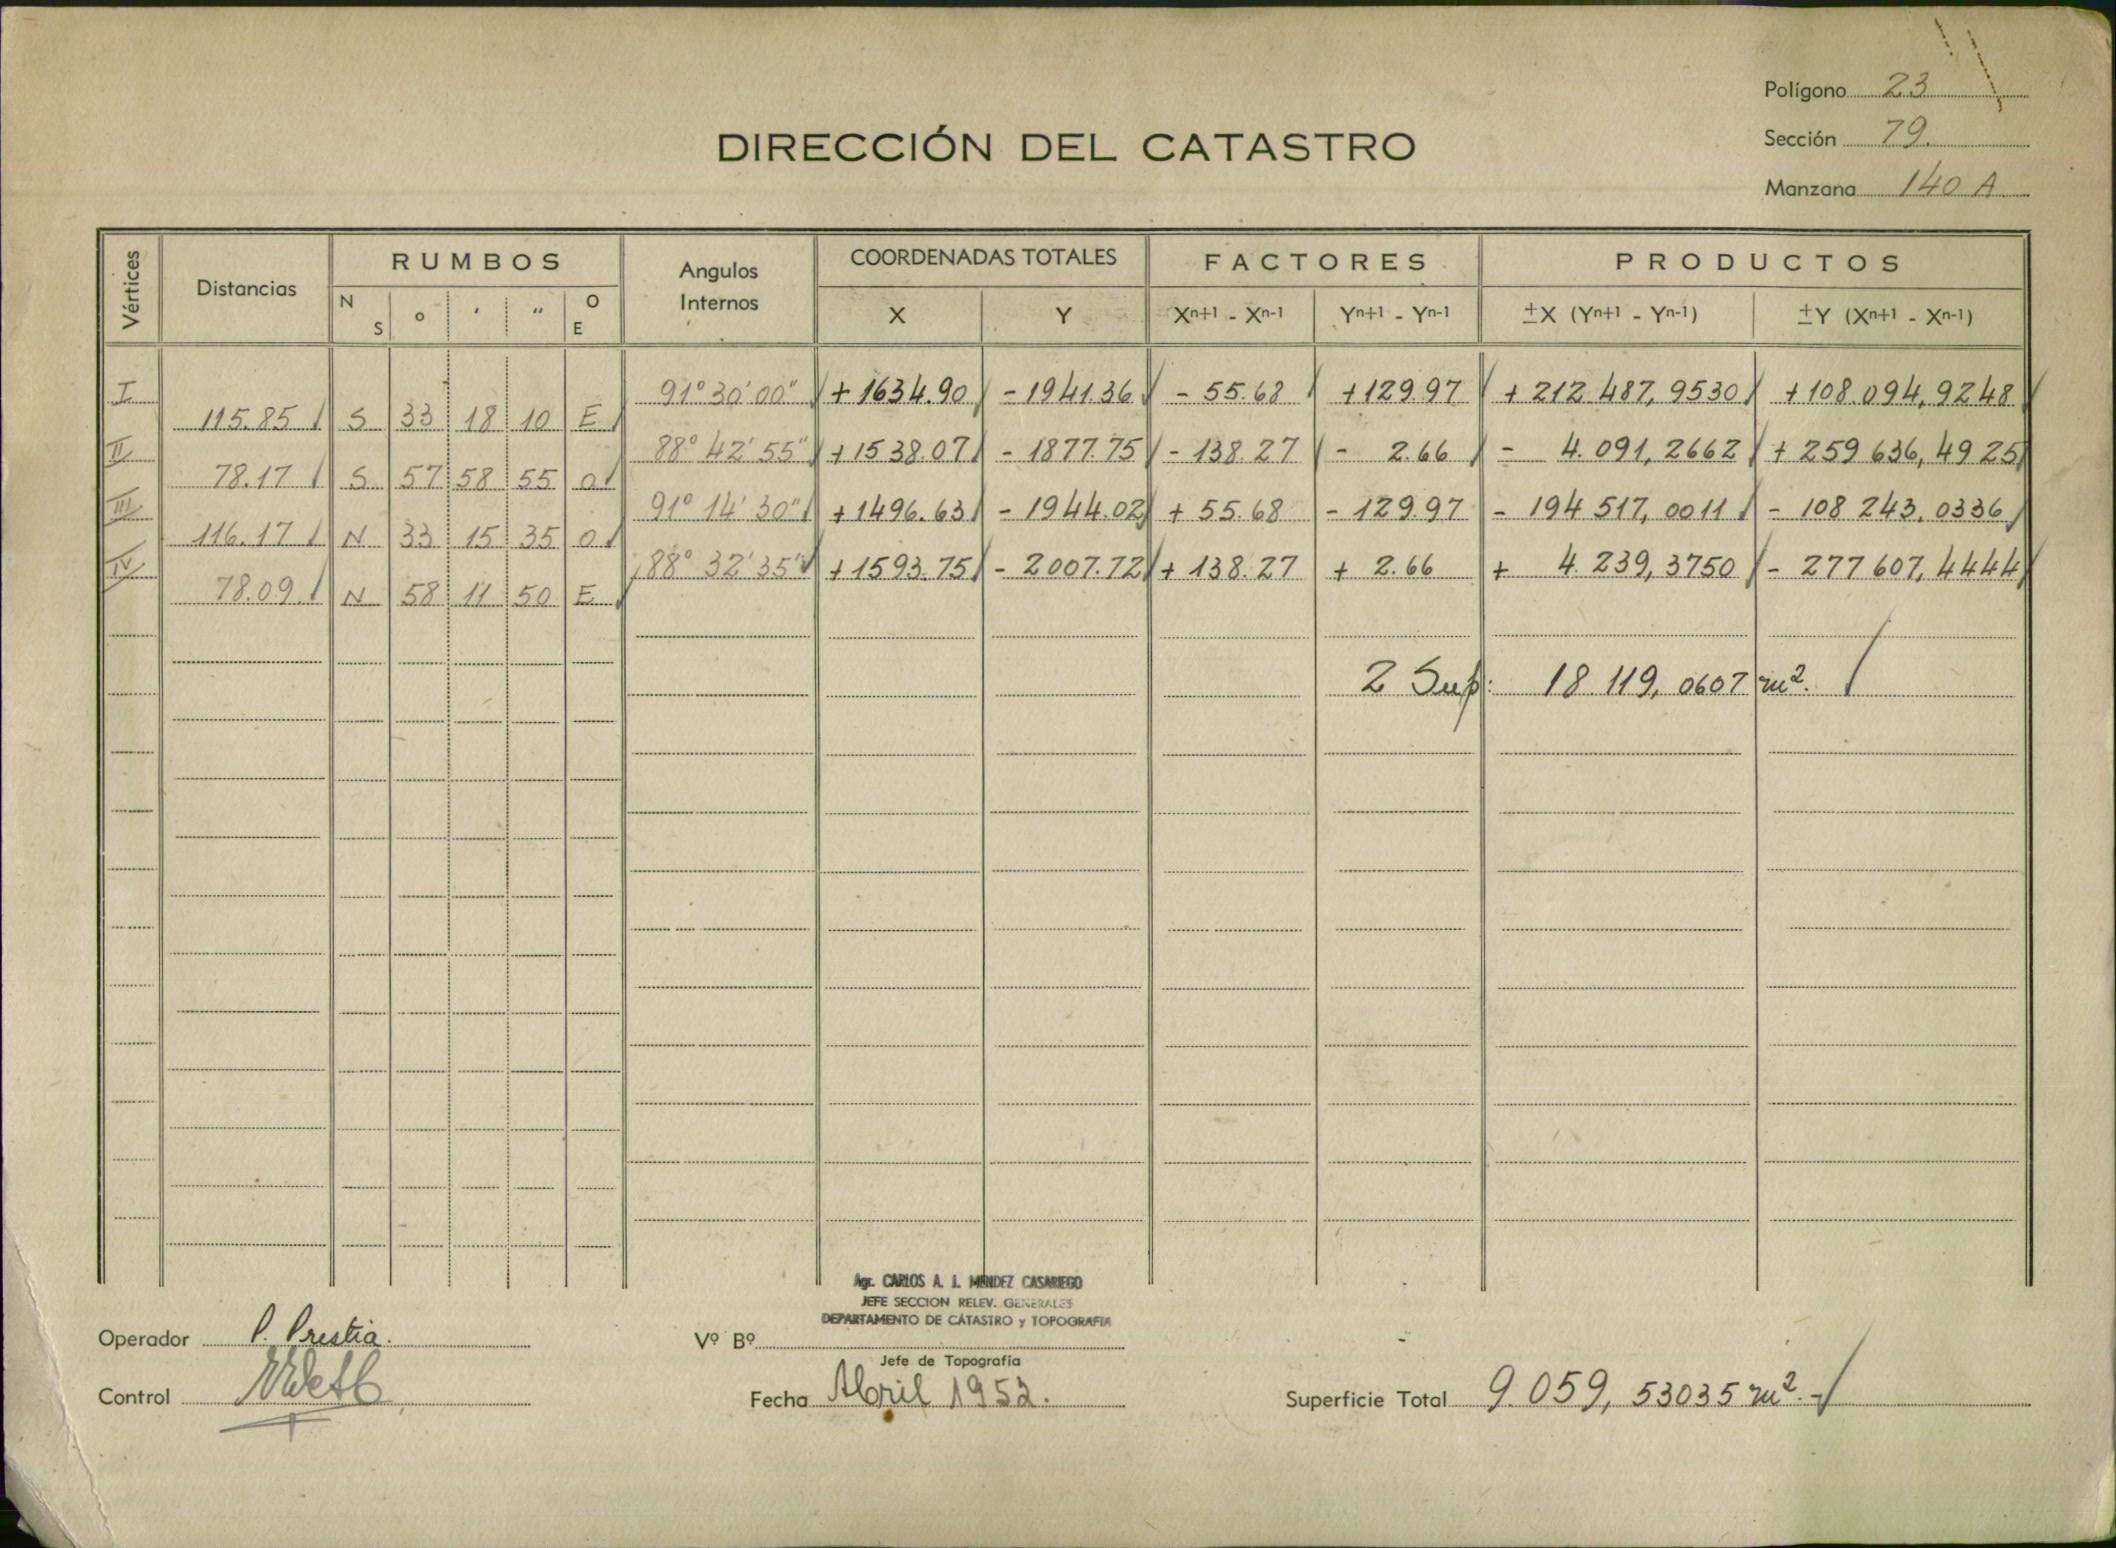 Polígono 23
Sección 79.
Manzana 140 A
DIRECCIÓN DEL CATASTRO
Vértices Distancias RUMBOS Angulos Internos COORDENADAS TOTALES FACTORES PRODUCTOS
N S ° ' " O E X Y Xⁿ⁺¹ - Xⁿ⁻¹ Yⁿ⁺¹ - Yⁿ⁻¹ ±X (Yⁿ⁺¹ - Yⁿ⁻¹) ±Y (Xⁿ⁺¹ - Xⁿ⁻¹)
I 91° 30' 00" + 1634.90 - 1941.36 - 55.68 + 129.97 + 212 487, 9530 + 108.094, 9248
115.85 S 33 18 10 E
II 88° 42' 55" + 1538.07 - 1877.75 - 138.27 - 2.66 - 4.091, 2662 + 259 636, 4925
78.17 S 57 58 55 O
III 91° 14' 30" + 1496.63 - 1944.02 + 55.68 - 129.97 - 194 517, 0011 - 108 243, 0336
116.17 N 33 15 35 O
IV 88° 32' 35" + 1593.75 - 2007.72 + 138.27 + 2.66 + 4.239, 3750 - 277 607, 4444
78.09 N 58 11 50 E
2 Sup: 18.119, 0607 m².
Agr. CARLOS A. J. MENDEZ CASARIEGO
JEFE SECCION RELEV. GENERALES
DEPARTAMENTO DE CATASTRO y TOPOGRAFIA
Operador P. Prestia.
Vº Bº
Jefe de Topografía
Control
Fecha Abril 1952.
Superficie Total 9.059, 53035 m².-